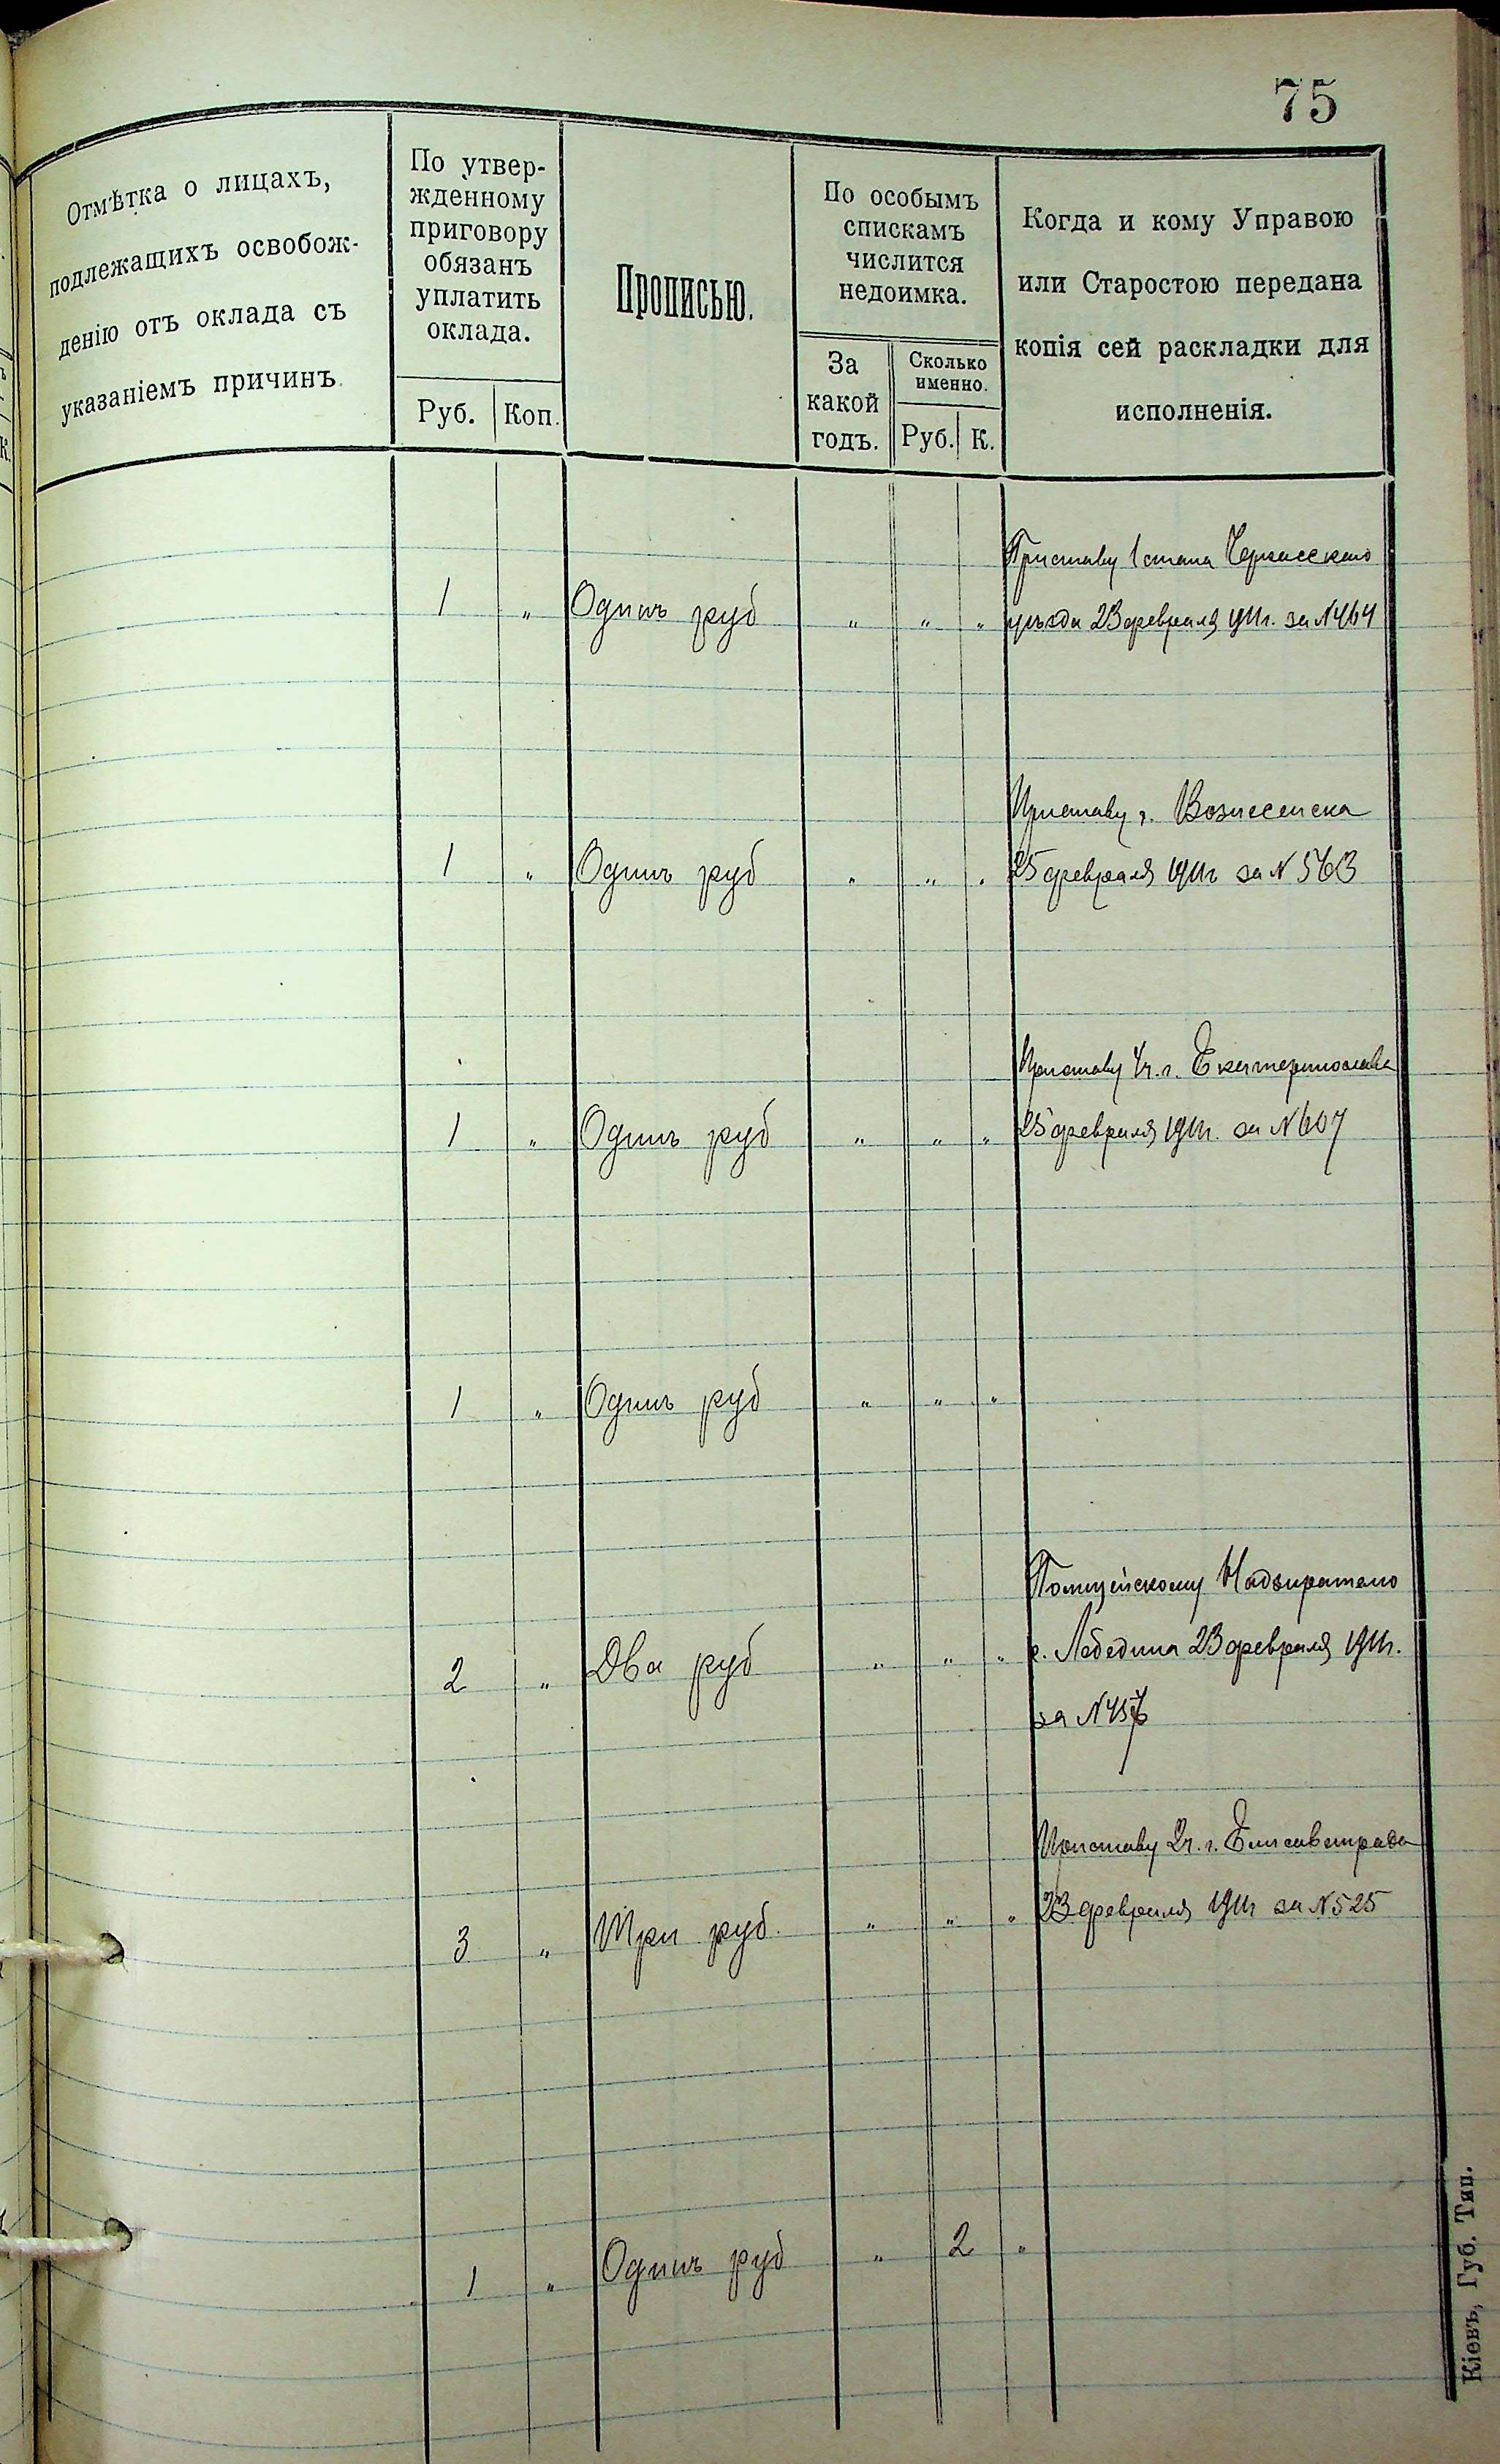 75
Отмѣтка о лицахъ,
подлежащихъ освобож-
денію отъ оклада съ
указаніемъ причинъ.
По утвер-
жденному
приговору
обязанъ
уплатить
оклада.
Руб. Коп.
Прописью.
По особымъ
спискамъ
числится
недоимка.
За
какой
годъ.
Сколько
именно.
Руб. К.
Когда и кому Управою
или Старостою передана
копія сей раскладки для
исполненія.
Приставу 1 стана Черкасскаго
1 „ Одинъ руб „ „ „ уѣзда 23 февраля 1911г. за N 464
Приставу г. Вознесенска
1 „ Одинъ руб „ „ „ 25 февраля 1911г за N 563
Приставу 4ч. г. Екатеринослава
1 „ Одинъ руб „ „ „ 25 февраля 1911г. за N 607
1 „ Одинъ руб „ „ „
Полицейскому Надзирателю
2 „ Два руб „ „ „ г. Лебедина 23 февраля 1911г.
за N
Приставу 2ч. г. Елисаветграда
3 „ Три руб. „ „ „ 23 февраля 1911г за N 525
1 „ Одинъ руб „ 2 „
Кіевъ, Губ. Тип.